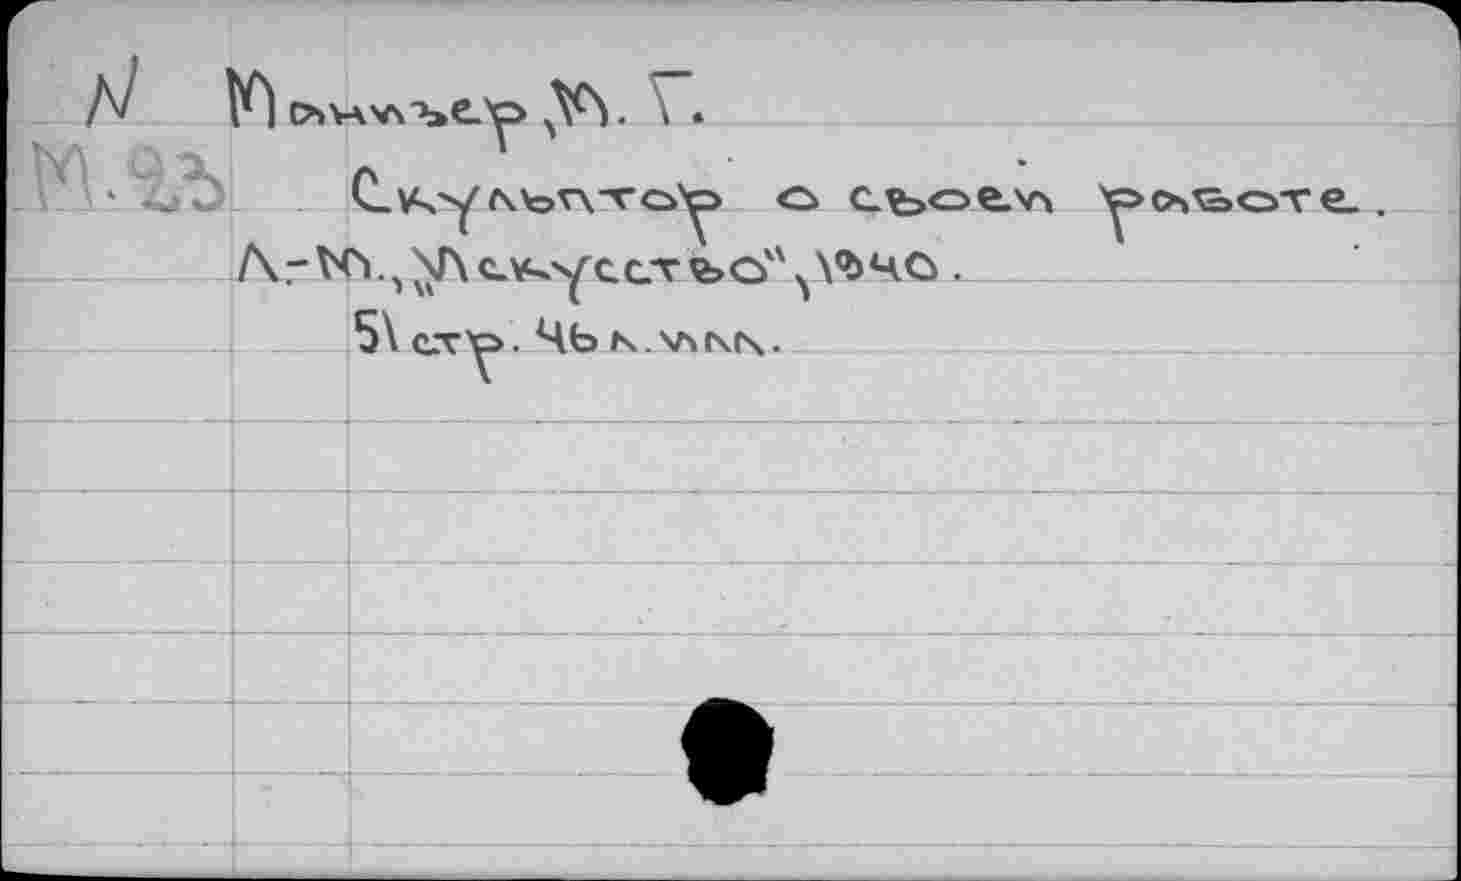 N Манизер, М. Г.
М.23
Скульптор о своей работе.
Л.-М., „Искусство", 1940.
51 стр. 46 илл.